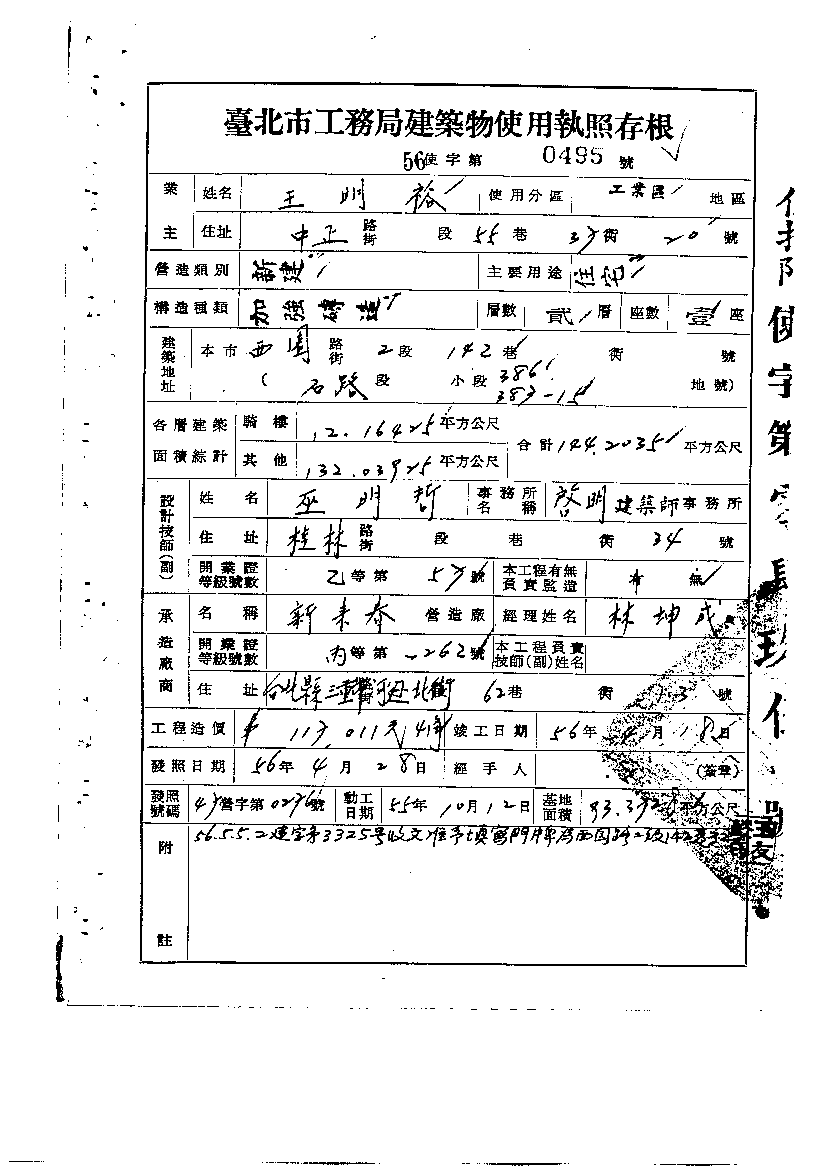 臺北市工務局建築物使用執照存根
56使字第 0495 號
業主 姓名 王明裕 使用分區 工業區 地區
住址 中正 路街 段 55 巷 37 衖 20 號
營造類別 新建 主要用途 住宅
構造種類 加強磚造 層數 貳 層 座數 壹 座
建築地址 本市 西園 路街 2 段 142 巷 衖 號
( 石路 段 小段 386 387-15 地號)
各層建築面積綜計 騎樓 12.16425 平方公尺 合計 144.20351 平方公尺
其他 132.03925 平方公尺
設計技師(副) 姓名 巫明哲 事務所名稱 啓明 建築師事務所
住址 桂林 路街 段 巷 衖 34 號
開業證等級號數 乙等第 57 號 本工程有無負實監造 有 無
承造廠商 名稱 新來泰 營造廠 經理姓名 林坤成
開業證等級號數 丙等第 262 號 本工程負實技師(副)姓名
住址 台北縣三重 北街 62巷 衖 號
工程造價 117,011元 竣工日期 56年 4月 18日
發照日期 56年 4月 28日 經手人 (簽章)
發照號碼 47營字第0276號 動工日期 55年10月12日 基地面積 93.392 平方公尺
附註 56.5.5.2建字第3325号收文准予填寫門牌為西园路二段142巷
使字第零肆玖伍號